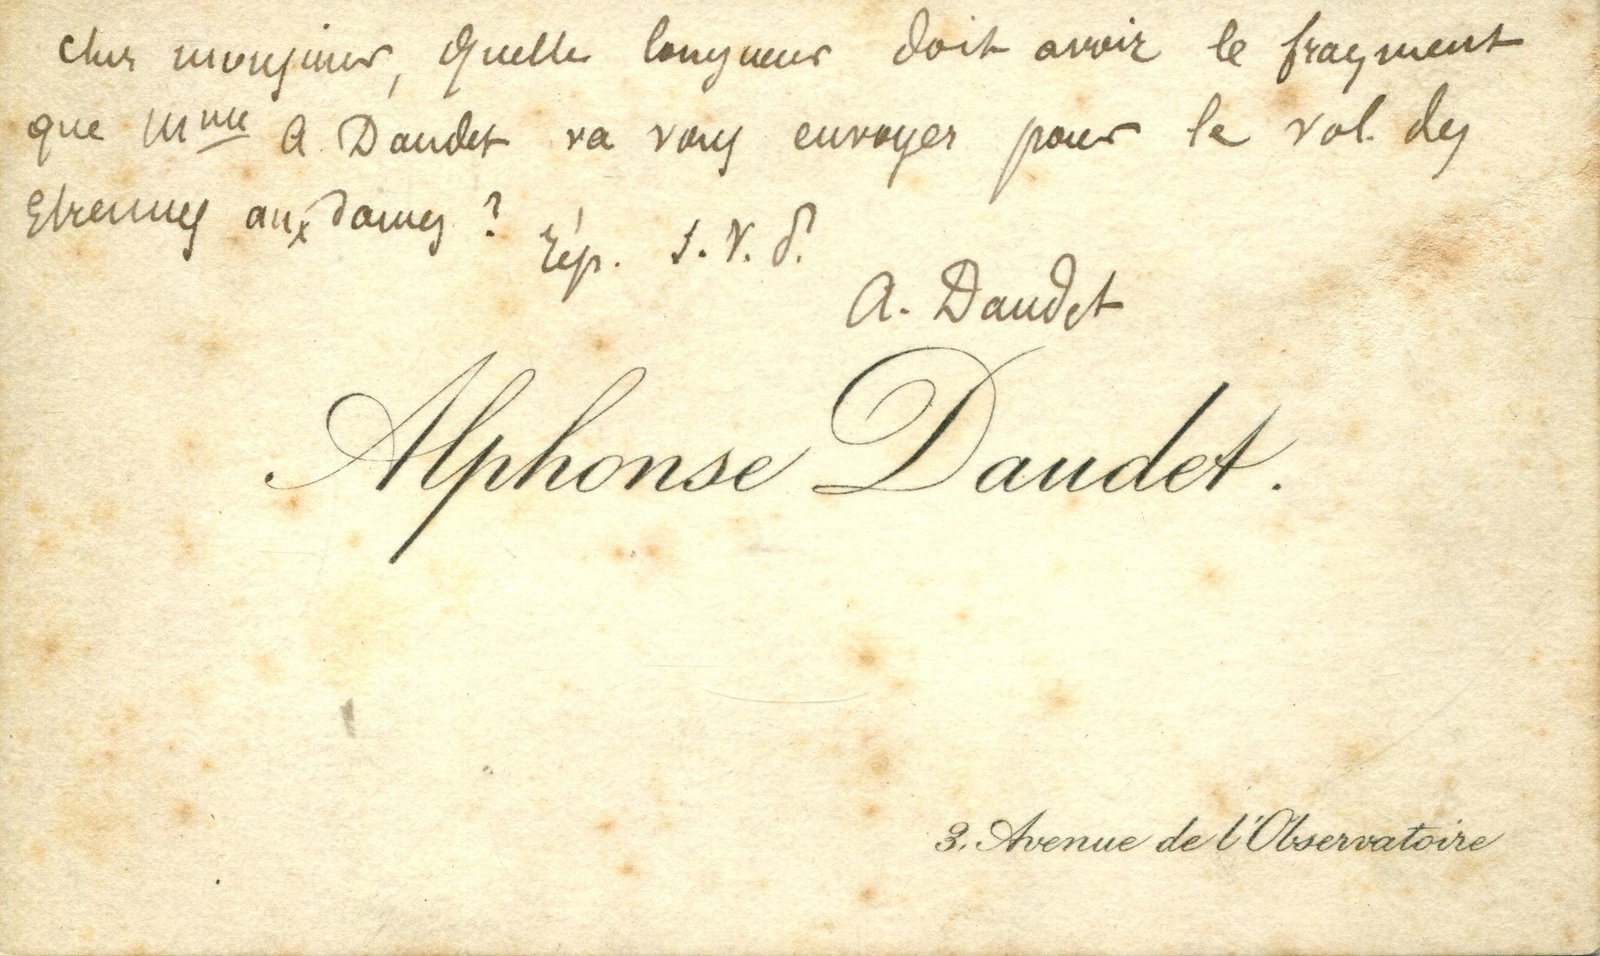 Cher monsieur, Quelle longueur doit avoir le fragment
que Mme A Daudet va vous envoyer pour le vol. des
Etrennes aux dames ?
Rép. S.V.P.
A. Daudet
Alphonse Daudet.
3, Avenue de l'Observatoire